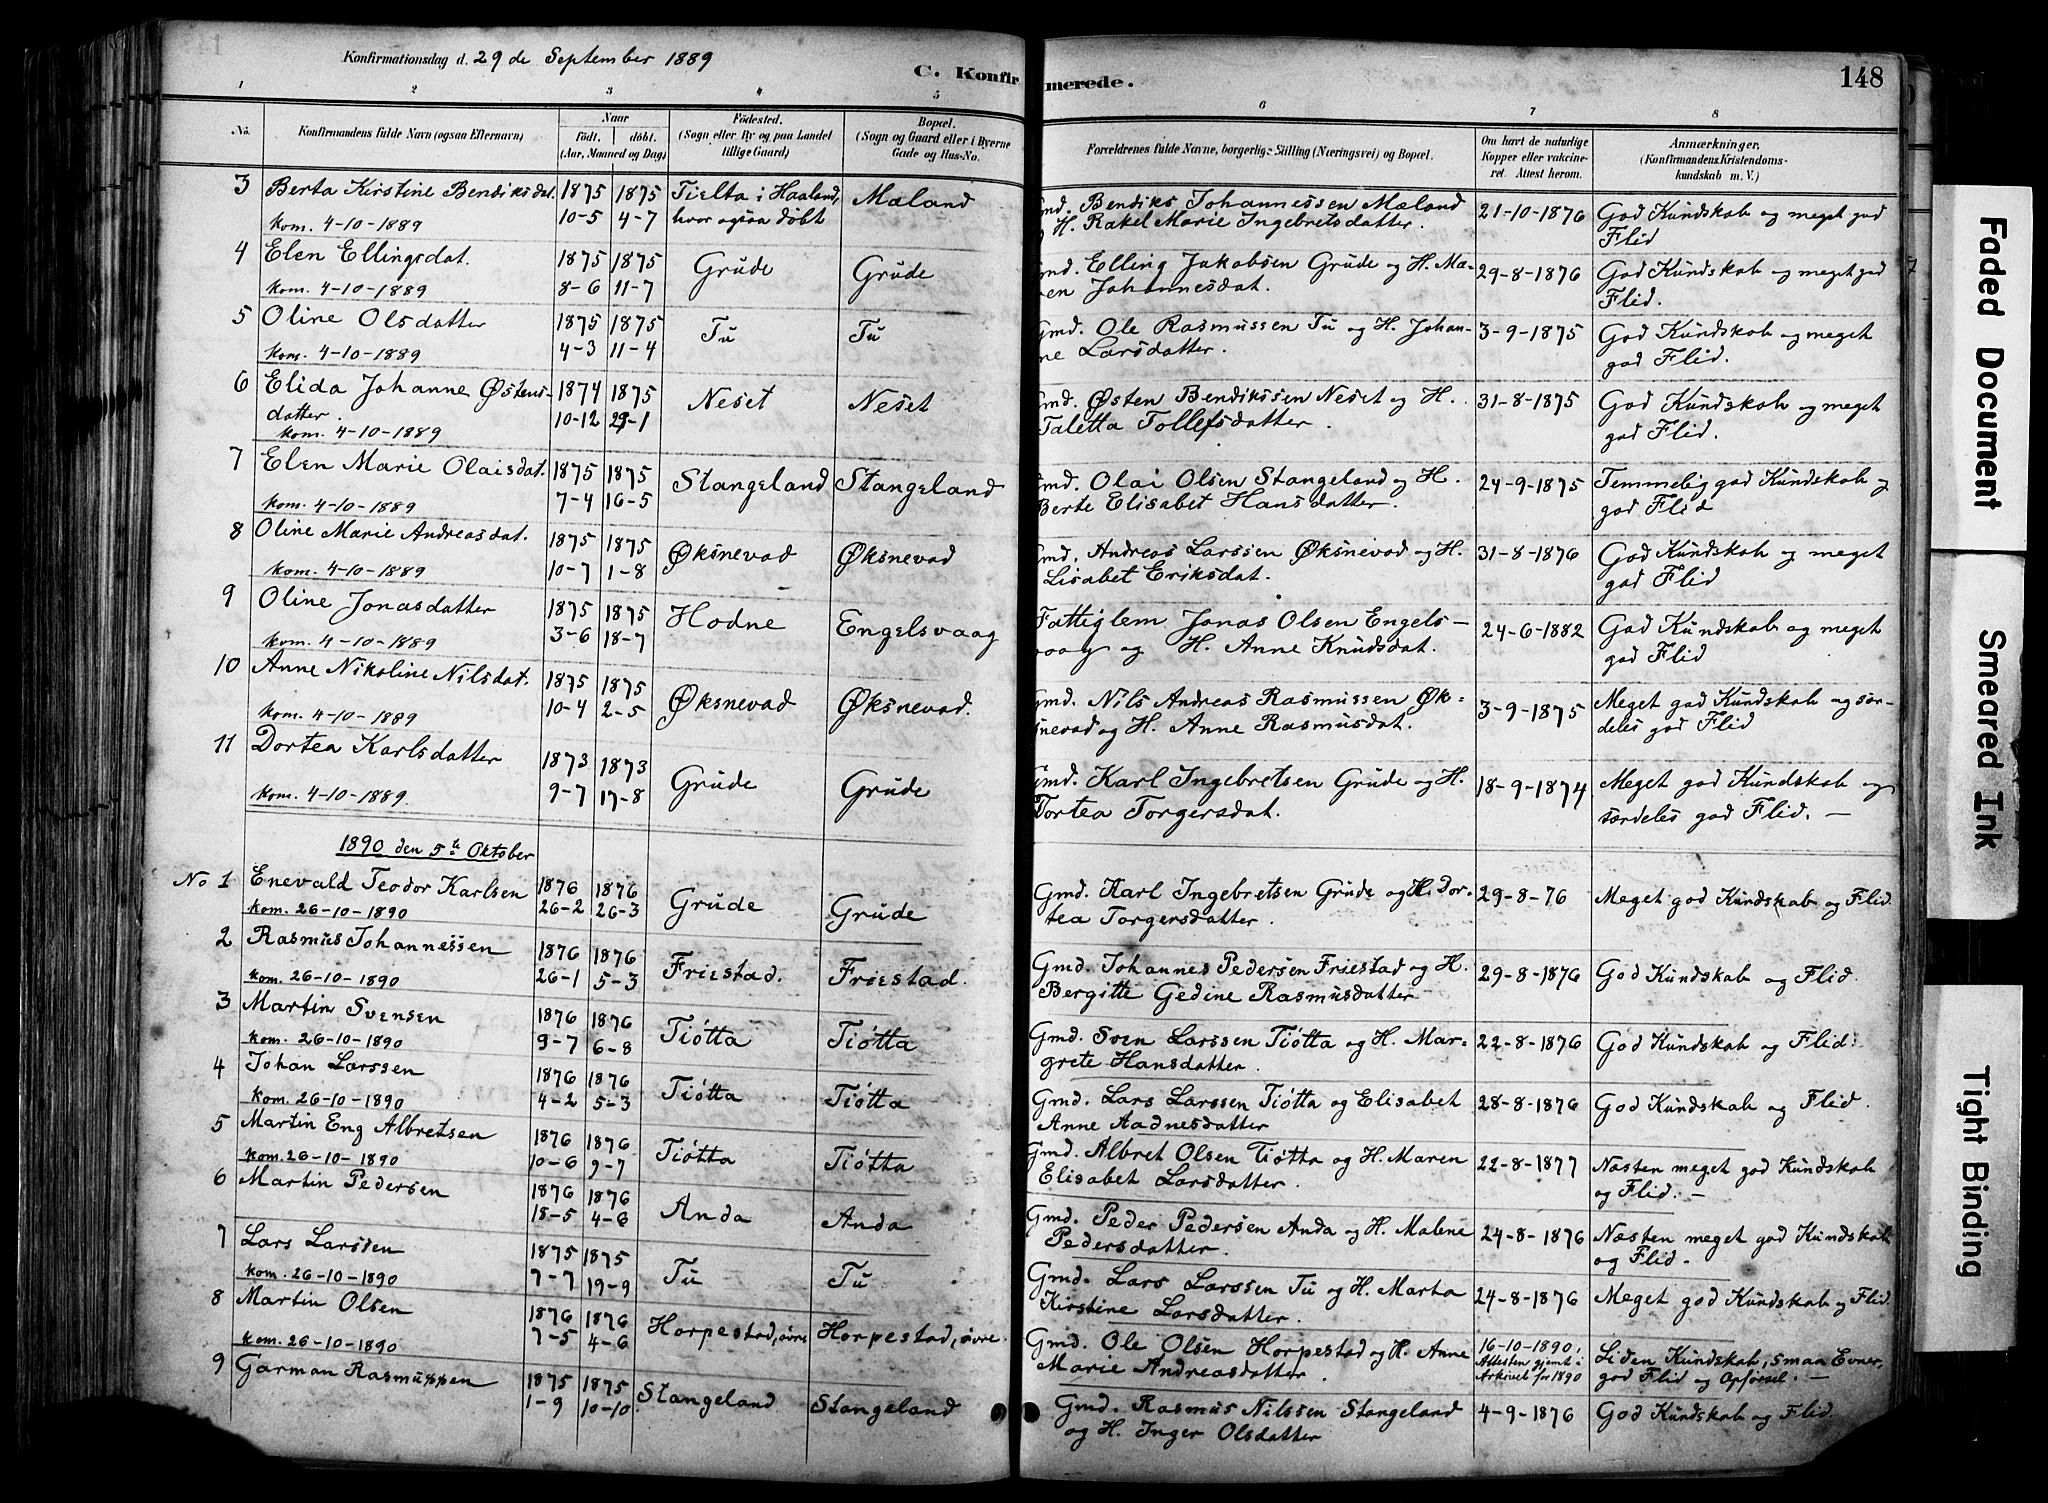 Konfirmationsdag d. 29 de September 1889
C. Konfirmerede.
148
1 2 3 4 5 6 7 8
No. Konfirmandens fulde Navn (ogsaa Efternavn) Naar født. døbt. (Aar, Maaned og Dag) Fødested. (Sogn eller By og paa Landet tillige Gaard) Bopæl. (Sogn og Gaard eller i Byerne Gade og Hus-No. Forældrenes fulde Navne, borgerlige Stilling (Næringsvei) og Bopæl. Om havt de naturlige Kopper eller vakcineret. Attest herom. Anmærkninger. (Konfirmandens Kristendomskundskab m. V.)
3 Berta Kirstine Bendiksdat. 1875 1875 Tjelta i Haaland, Mæland Gmd. Bendiks Johannessen Mæland 21-10-1876 God Kundskab og meget god
kom. 4-10-1889 10-5 4-7 hvor ogsaa døbt og H. Rakel Marie Ingebretsdatter. Flid
4 Elen Ellingsdat. 1875 1875 Grude Grude Gmd. Elling Jakobsen Grude og H. Ma- 29-8-1876 God Kundskab og meget god
kom. 4-10-1889 8-6 11-7 ren Johannesdat. Flid.
5 Oline Olsdatter 1875 1875 Tu Tu Gmd. Ole Rasmussen Tu og H. Johan- 3-9-1875 God Kundskab og meget
kom. 4-10-1889 4-3 11-4 ne Larsdatter. god Flid.
6 Elida Johanne Østens- 1874 1875 Neset Neset Gmd. Østen Bendikssen Neset og H. 31-8-1875 God Kundskab og meget
datter. 10-12 29-1 Taletta Tollefsdatter. god Flid.
kom. 4-10-1889
7 Elen Marie Olaisdat. 1875 1875 Stangeland Stangeland Gmd. Olai Olsen Stangeland og H. 24-9-1875 Temmelig god Kundskab og
kom. 4-10-1889 7-4 16-5 Berte Elisabet Hansdatter. god Flid
8 Oline Marie Andreasdat. 1875 1875 Øksnevad Øksnevad Gmd. Andreas Larssen Øksnevad og H. 31-8-1876 God Kundskab og meget
kom. 4-10-1889 10-7 1-8 Lisabet Eriksdat. god Flid
9 Oline Jonasdatter 1875 1875 Hodne Engelsvaag Fattiglem Jonas Olsen Engels- 24-6-1882 God Kundskab og meget
kom. 4-10-1889 3-6 18-7 vaag og H. Anne Knudsdat. god Flid
10 Anne Nikoline Nilsdat. 1875 1875 Øksnevad Øksnevad. Gmd. Nils Andreas Rasmussen Øk- 3-9-1875 Meget god Kundskab og sær-
kom. 4-10-1889 10-4 2-5 snevad og H. Anne Rasmusdat. deles god Flid
11 Dortea Karlsdatter 1873 1873 Grude Grude Gmd. Karl Ingebretsen Grude og H. 18-9-1874 Meget god Kundskab og
kom. 4-10-1889. 9-7 17-8 Dortea Torgersdat. særdeles god Flid. —
1890 den 5te Oktober
No 1 Enevald Teodor Karlsen 1876 1876 Grude Grude Gmd. Karl Ingebretsen Grude og H. Dor- 29-8-76 Meget god Kundskab og Flid
kom. 26-10-1890 26-2 26-3 tea Torgersdatter.
2 Rasmus Johannessen 1876 1876 Friestad. Friestad. Gmd. Johannes Pedersen Friestad og H. 29-8-1876 God Kundskab og Flid.
kom. 26-10-1890 26-1 5-3 Bergitte Gedine Rasmusdatter
3 Martin Svensen 1876 1876 Tiøtta Tiøtta Gmd. Sven Larssen Tiøtta og H. Mar- 22-8-1876 God Kundskab og Flid.
kom. 26-10-1890 9-7 6-8 grete Hansdatter.
4 Johan Larssen 1876 1876 Tiøtta Tiøtta Gmd. Lars Larssen Tiøtta og Elisabet 28-8-1876 God Kundskab og Flid.
kom. 26-10-1890 4-2 5-3 Anne Aadnesdatter
5 Martin Eng Albretsen 1876 1876 Tiøtta Tiøtta Gmd. Albret Olsen Tiøtta og H. Maren 22-8-1877 Næsten meget god Kundskab
kom. 26-10-1890 10-6 9-7 Elisabet Larsdatter. og Flid. —
6 Martin Pedersen 1876 1876 Anda Anda Gmd. Peder Pedersen Anda og H. Malene 24-8-1876 Næsten meget god Kundskab
18-5 4-6 Pedersdatter. og Flid.
7 Lars Larssen 1875 1875 Tu Tu Gmd. Lars Larssen Tu og H. Marta 24-8-1876 Meget god Kundskab og Flid.
kom. 26-10-1890 7-7 19-9 Kirstine Larsdatter.
8 Martin Olsen 1876 1876 Horpestad, øvre Horpestad, øvre. Gmd. Ole Olsen Horpestad og H. Anne 16-10-1890. Attesten gjemt i Arkivet for 1890 Liden Kundskab, smaa Evner,
kom. 26-10-1890 7-5 4-6 Marie Andreasdatter. god Flid og Opførsel. —
9 Garman Rasmussen 1875 1875 Stangeland Stangeland Gmd. Rasmus Nilssen Stangeland 4-9-1876 God Kundskab og Flid
1-9 10-10 og H. Inger Olsdatter
Faded Document
Smeared Ink
Tight Binding